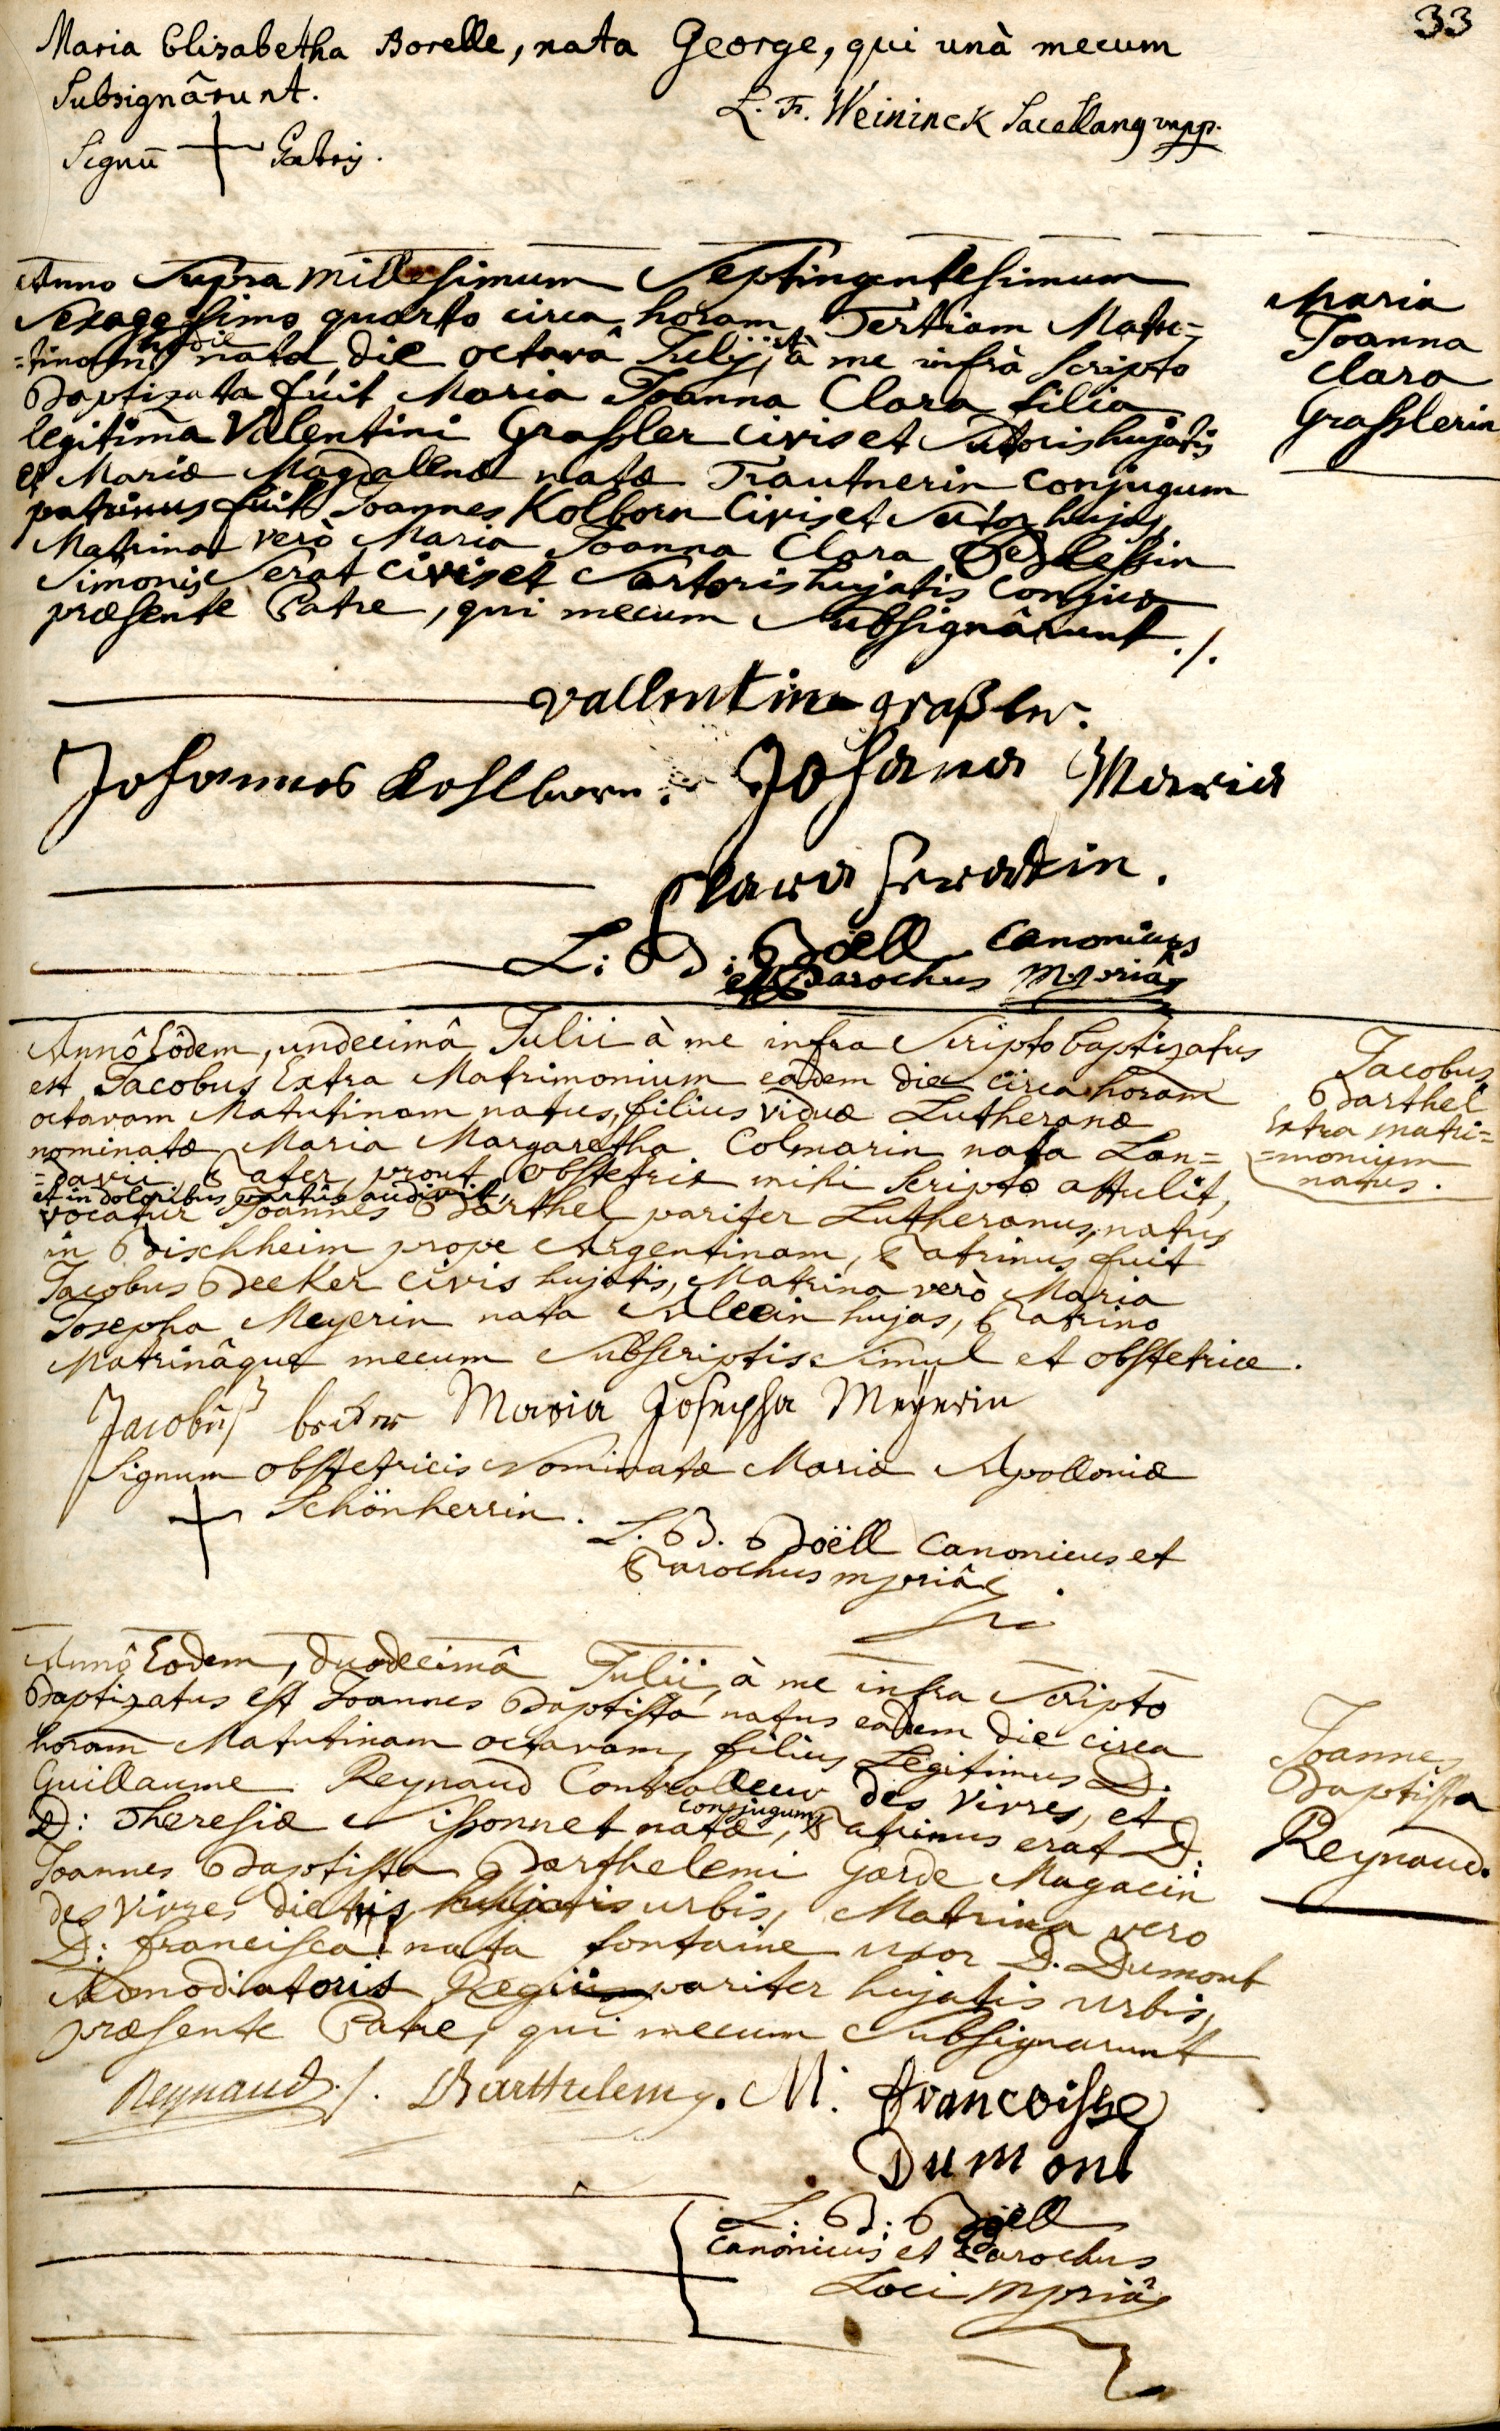 33
Maria Elisabetha Borelle, nata George, qui unà mecum
Subsignârunt.
L. Fr. Weininck Sacellang mpp.
Signū + Patris.
Anno Supra millesimum Septingentesimum
Sexagesimo quarto circa horam Tertiam Matu=
=tinam hodie nata, die octavâ Julij, et à me infrà Scripto
Baptizata fuit Maria Joanna Clara filia
legitima Valentini Grassler civis et Sutoris hujatis
et Mariæ Magdalenæ natæ Trautnerin conjugum
patrinus fuit Joannes Kolborn Civis et Sutor hujas,
Matrina verò Maria Joanna Clara
Simonis Serat civis et Sartoris hujatis conjux
præsente Patre, qui mecum Subsignârunt ./.
Maria
Joanna
Clara
Grasslerin
vallentin graßler.
Johannes Kohlborn. Johana Maria
Clara Seratin.
L: B: Böell Canonicus
et Parochus mpriâ
Annô Eôdem, undecimâ Julii à me infra Scripto baptizatus
est Jacobus Extra Matrimonium eadem die circa horam
octavam Matutinam natus, filius viduæ Lutheranæ
nominatæ Maria Margaretha Colmarin nata Lan=
=davii. Pater, prout obstetrix mihi Scripto attulit,
et in doloribus partûs audivit,
vocatur Joannes Barthel pariter Lutheranus, natus
in Bischheim prope Argentinam, Patrinus fuit
Jacobus Becker civis hujatis, Matrina verò Maria
Josepha Meyerin nata hujas, Patrino
Matrinâque mecum Subscriptis Simul et obstetrice.
Jacobus
Barthel
Extra matri=
=monium
natus.
Jacobus becker Maria Josepha Meyerin
Signum obstetricis Nominatæ Mariæ Apolloniæ
+ Schönherrin.
L. B. Boëll Canonicus et
Parochus mpriâ
Annô Eodem, Duodecimâ Julii, à me infra Scripto
Baptizatus est Joannes Baptista natus eadem Die circa
horam Matutinam octavam, filius Legitimus D.
Guillaume Reynaud Controlleur des vivres, et
D: Theresiæ Nissonnet natæ, conjugum, Patrinus erat D:
Joannes Baptista Barthelemi Garde Magacin
des vivres dictus hujatis urbis, Matrina vero
D: Francisca nata fontaine uxor D. Dumont
Admodiatoris Regii pariter hujatis urbis,
præsente Patre, qui mecum Subsignarunt
Joannes
Baptista
Reynaud.
Reynaud ./. Barthelemy. M: francoisse
Dumont
L: B: Böell
Canonicus et Parochus
Loci mpriâ